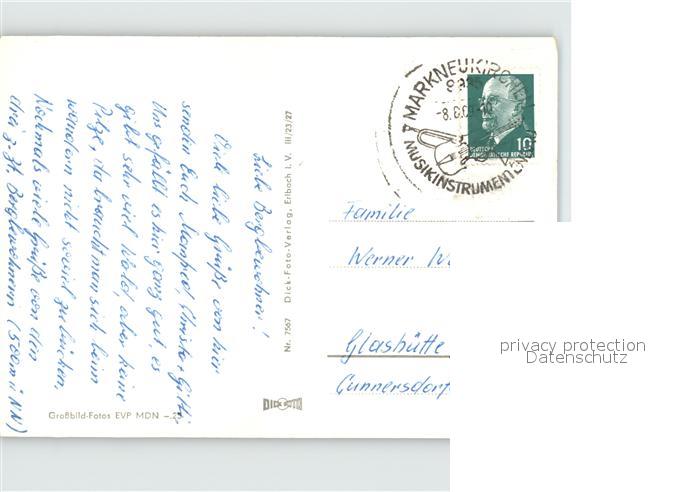 Liebe Bergbewohner!
Viele liebe Grüße von hier
senden Euch Manfred, Christa, Gitti
Uns gefällt es hier ganz gut, es
gibt sehr viel Wald, aber keine
Pilze, da braucht man sich beim
wandern nicht soviel zu bücken,
Nochmals viele Grüße von den
drei z. Zt. Bergbewohnern (550m ü NN)
Großbild-Fotos EVP MDN –.25
Nr. 7567 Dick-Foto-Verlag, Erlbach i. V. III/23/27
DICK FOTO
MARKNEUKIRCHEN
MUSIKINSTRUMENTEN
10
DEUTSCHE
DEMOKRATISCHE REPUBLIK
Familie
Werner
Glashütte
Cunnersdorf
privacy protection
Datenschutz